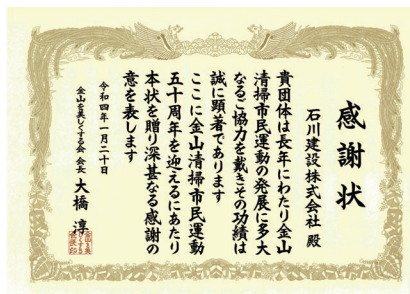 感謝状
石川建設株式会社 殿
貴団体は長年にわたり金山
清掃市民運動の発展に多大
なるご協力を戴きその功績は
誠に顕著であります
ここに金山清掃市民運動
五十周年を迎えるにあたり
本状を贈り深甚なる感謝の
意を表します
令和四年一月二十日
金山を美しくする会 会長 大橋 淳